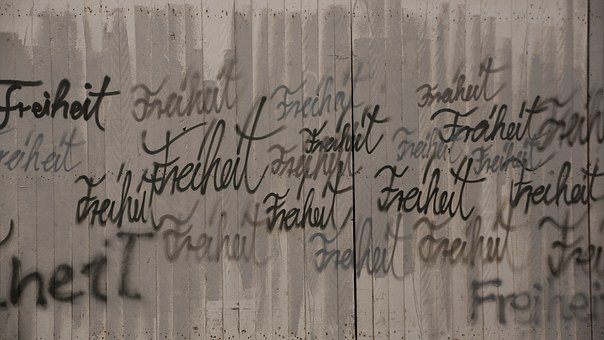 Freiheit Freiheit Freiheit Freiheit
reiheit Freiheit Freiheit Freiheit Freiheit Freiheit Freih
Freiheit Freiheit Freiheit Freiheit Freiheit
Freiheit Freiheit Freiheit Frei
iheiT Freihei